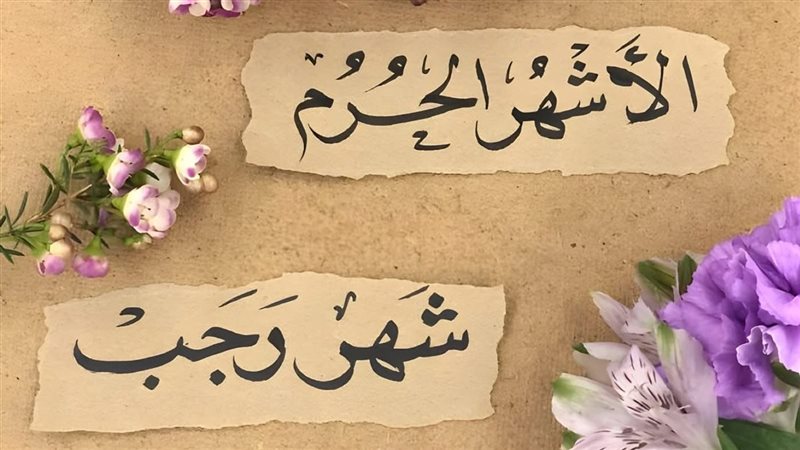 الأَشْهُر الحُرُم
شَهر رَجَبْ